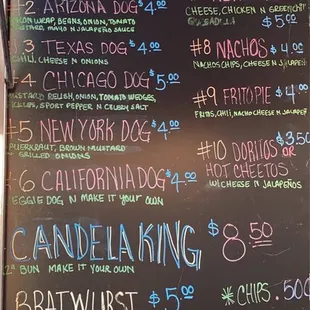 #2 ARIZONA DOG $4.00
BACON WRAP, BEANS, ONION, TOMATO
MUSTARD, MAYO N JALAPEÑO SAUCE
#3 TEXAS DOG $4.00
CHILI, CHEESE N ONIONS
#4 CHICAGO DOG $5.00
MUSTARD RELISH, ONION, TOMATO WEDGES,
PICKLES, SPORT PEPPER N CELERY SALT
#5 NEW YORK DOG $4.00
SAUERKRAUT, BROWN MUSTARD
GRILLED ONIONS
#6 CALIFORNIA DOG $4.00
VEGGIE DOG N MAKE IT YOUR OWN
CANDELA KING $8.50
BUN MAKE IT YOUR OWN
BRATWURST $5.00
CHEESE, CHICKEN N GREEN CHILI
#8 NACHOS $4.00
NACHOS CHIPS, CHEESE N JALAPEÑOS
#9 FRITO PIE $4.00
FRITOS, CHILI, NACHO CHEESE N JALAPEÑO
#10 DORITOS OR $3.50
HOT CHEETOS
W/ CHEESE N JALAPEÑOS
* CHIPS .50¢